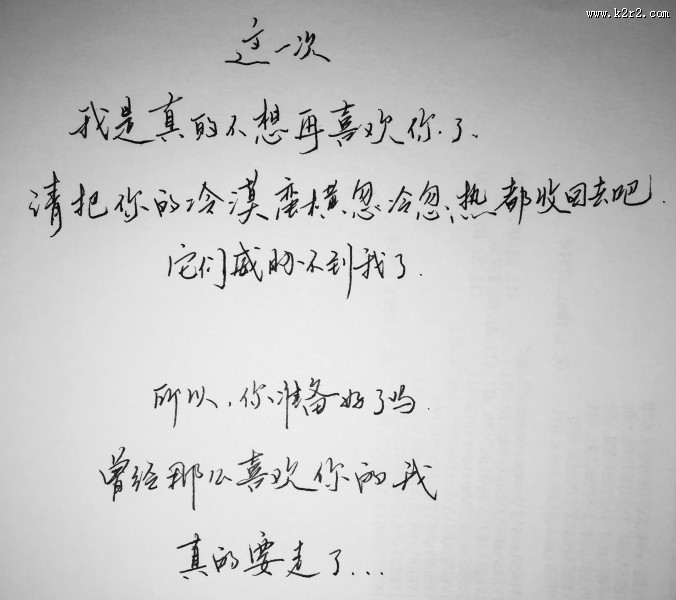 www.k2r2.com
这一次
我是真的不想再喜欢你了、
请把你的冷漠蛮横忽冷忽热都收回去吧.
它们威胁不到我了.
所以,你准备好了吗.
曾经那么喜欢你的我
真的要走了...